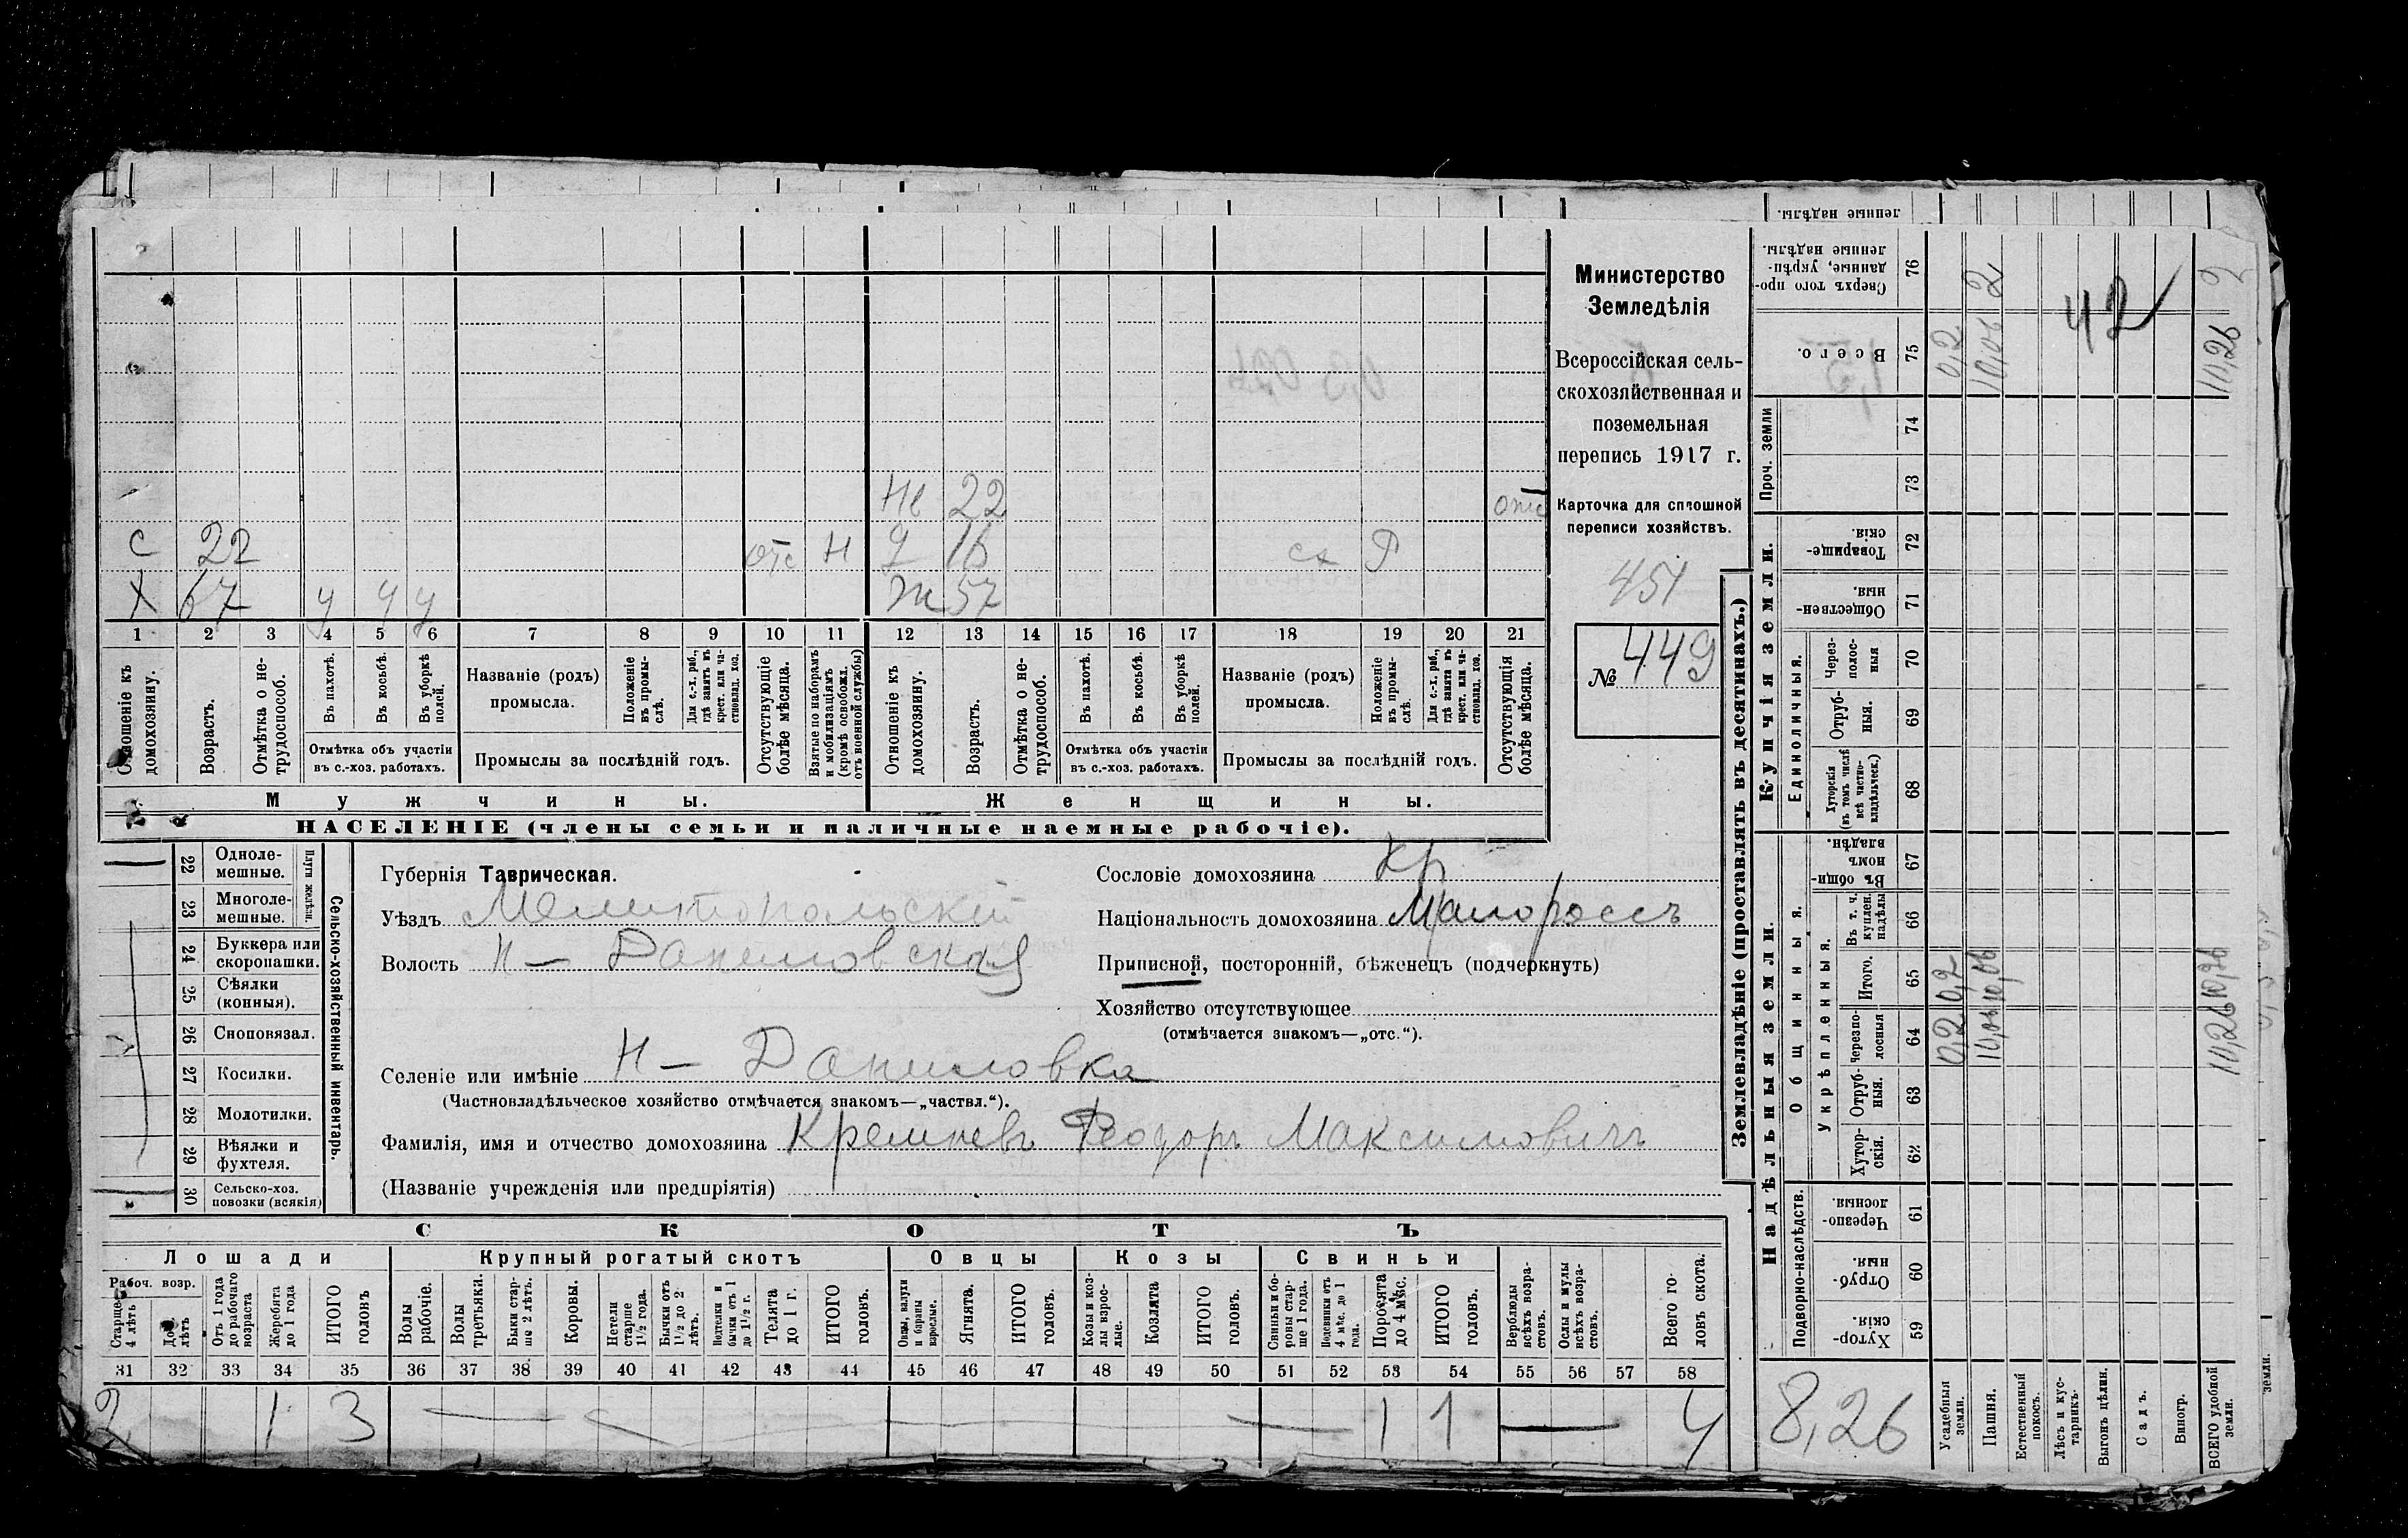 Министерство
Земледѣлія
Всероссійская сель-
скохозяйственная и
поземельная
перепись 1917 г.
Карточка для сплошной
переписи хозяйствъ.
451
№ 449
Не 22 отс
С 22 отс Н д 16 сх Р
Х 67 у у у Ж 57
1 2 3 4 5 6 7 8 9 10 11 12 13 14 15 16 17 18 19 20 21
Отношеніе къ домохозяину.
Возрастъ.
Отмѣтка о не-трудоспособ.
Въ пахотѣ.
Въ косьбѣ.
Въ уборкѣ полей.
Отмѣтка объ участіи
въ с.-хоз. работахъ.
Названіе (родъ)
промысла.
Положеніе въ промы-слѣ.
Для с.-х. раб., гдѣ занятъ въ крест. или ча-стновлад. хоз.
Промыслы за послѣдній годъ.
Отсутствующіе болѣе мѣсяца.
Взятые по наборамъ и мобилизаціямъ (кромѣ освобожд. отъ военной службы)
Отношеніе къ домохозяину.
Возрастъ.
Отмѣтка о не-трудоспособ.
Въ пахотѣ.
Въ косьбѣ.
Въ уборкѣ полей.
Отмѣтка объ участіи
въ с.-хоз. работахъ.
Названіе (родъ)
промысла.
Положеніе въ промы-слѣ.
Для с.-х. раб., гдѣ занята въ крест. или ча-стновлад. хоз.
Промыслы за послѣдній годъ.
Отсутствующія болѣе мѣсяца.
Мужчины. Женщины.
НАСЕЛЕНІЕ (члены семьи и наличные наемные рабочіе).
22 Одноле-мешные.
23 Многоле-мешные.
Плуги желѣзн.
24 Буккера или скоропашки.
25 Сѣялки (конныя).
26 Сноповязал.
27 Косилки.
28 Молотилки.
29 Вѣялки и фухтеля.
30 Сельско-хоз. повозки (всякія)
Сельско-хозяйственный инвентарь.
Губернія Таврическая.
Уѣздъ Мелитопольскій
Волость Н - Даниловская
Селеніе или имѣніе Н - Даниловка
(Частновладѣльческое хозяйство отмѣчается знакомъ—„частвл.“).
Фамилія, имя и отчество домохозяина Кремневъ Феодоръ Максимовичъ
(Названіе учрежденія или предпріятія)
Сословіе домохозяина Кр
Національность домохозяина Малороссъ
Приписной, посторонній, бѣженецъ (подчеркнуть)
Хозяйство отсутствующее
(отмѣчается знакомъ—„отс.“).
СКОТЪ
Лошади Крупный рогатый скотъ Овцы Козы Свиньи
Рабоч. возр.
Старше 4 лѣтъ
До 4 лѣтъ
Отъ 1 года до рабочаго возраста
Жеребята до 1 года
ИТОГО головъ
Волы рабочіе.
Волы третьяки.
Быки стар-ше 2 лѣтъ.
Коровы.
Нетели старше 1½ года.
Бычки отъ 1½ до 2 лѣтъ.
Нетели и бычки отъ 1 до 1½ г.
Телята до 1 г.
ИТОГО головъ.
Овцы, валухи и бараны взрослые.
Ягнята.
ИТОГО головъ.
Козы и коз-лы взрос-лые.
Козлята
ИТОГО головъ.
Свиньи и бо-ровы стар-ше 1 года.
Подсвинки отъ 4 мѣс. до 1 года.
Поросята до 4 мѣс.
ИТОГО головъ.
Верблюды всѣхъ возра-стовъ.
Ослы и мулы всѣхъ возра-стовъ.
Всего го-ловъ скота.
31 32 33 34 35 36 37 38 39 40 41 42 43 44 45 46 47 48 49 50 51 52 53 54 55 56 57 58
2 1 3 1 1 4
Землевладѣніе (проставлять въ десятинахъ.)
ленные надѣлы.
Сверхъ того про-данные, укрѣп-ленные надѣлы. 76 2 2
42
Всего. 75 0,2 10,06 10,26
Проч. земли 74
73
Купчія земли.
Товарище-скія. 72
Обществен-ныя. 71
Единоличныя.
Через-полос-ныя 70
Отруб-ныя. 69
Хуторскія (въ томъ числѣ всѣ частно-владѣльческ.) 68
Надѣльныя земли.
Общинныя.
Въ общи-номъ владѣн. 67
Укрѣпленныя.
Въ т. ч. куплен. надѣлы 66
Итого. 65 0,2 10,06 10,26
Черезпо-лосныя 64 0,2 10,06 10,26
Отруб-ныя. 63
Хутор-скія. 62
Подворно-наслѣдств.
Черезпо-лосныя 61
Отруб-ныя. 60
Хутор-скія. 59
8,26
Усадебныя земли.
Пашня.
Естественный покосъ.
Лѣсъ и кус-тарникъ.
Выгонъ цѣлин.
Садъ.
Виногр.
ВСЕГО удобной земли.
земли.